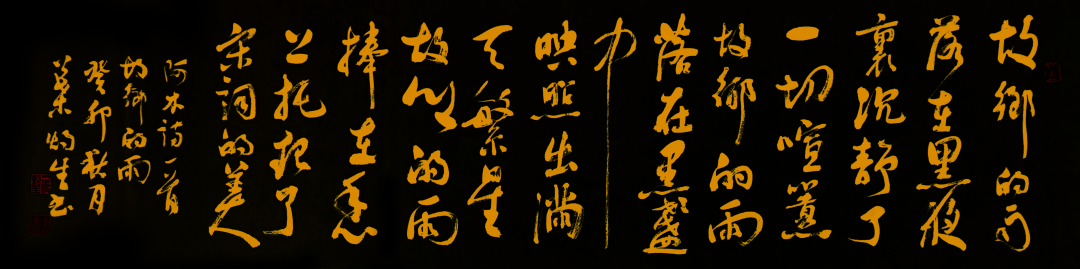 故鄉的雨
落在黑夜
裏沉静了
一切喧嚣
故鄉的雨
落在黑盞
中
映照出满
天繁星
故鄉的雨
捧在手心
上托起了
宋词的美人
阿木诗一首
故鄉的雨
癸卯秋月
生书